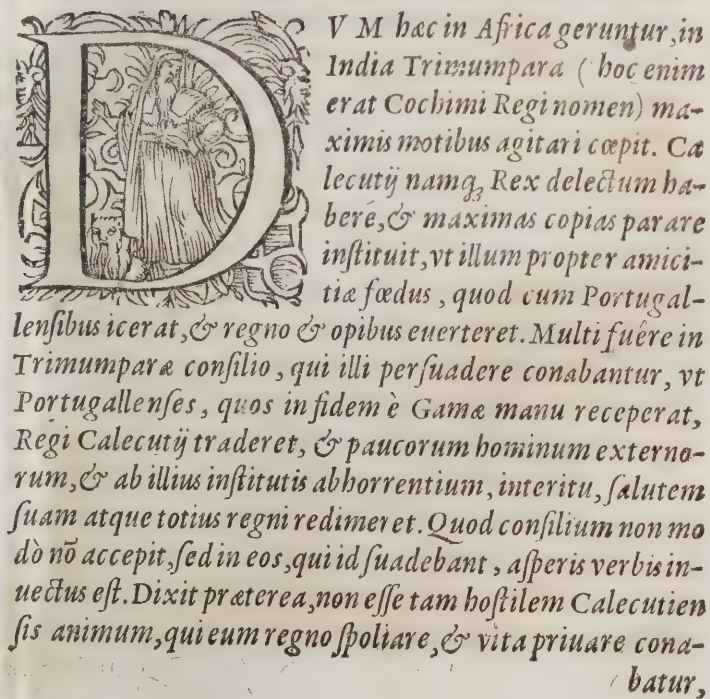 DVM hæc in Africa geruntur, in
India Trimumpara (hoc enim
erat Cochimi Regi nomen) ma-
ximis motibus agitari cœpit. Ca
lecutij namq; Rex delectum ha-
bere, & maximas copias parare
instituit, vt illum propter amici-
tiæ fœdus, quod cum Portugal-
lensibus icerat, & regno & opibus euerteret. Multi fuêre in
Trimumparæ consilio, qui illi persuadere conabantur, vt
Portugallenses, quos in fidem è Gamæ manu receperat,
Regi Calecutij traderet, & paucorum hominum externo-
rum, & ab illius institutis abhorrentium, interitu, salutem
suam atque totius regni redimeret. Quod consilium non mo
dò nō accepit, sed in eos, qui id suadebant, asperis verbis in-
uectus est. Dixit præterea, non esse tam hostilem Calecutien
sis animum, qui eum regno spoliare, & vita priuare cona-
batur,